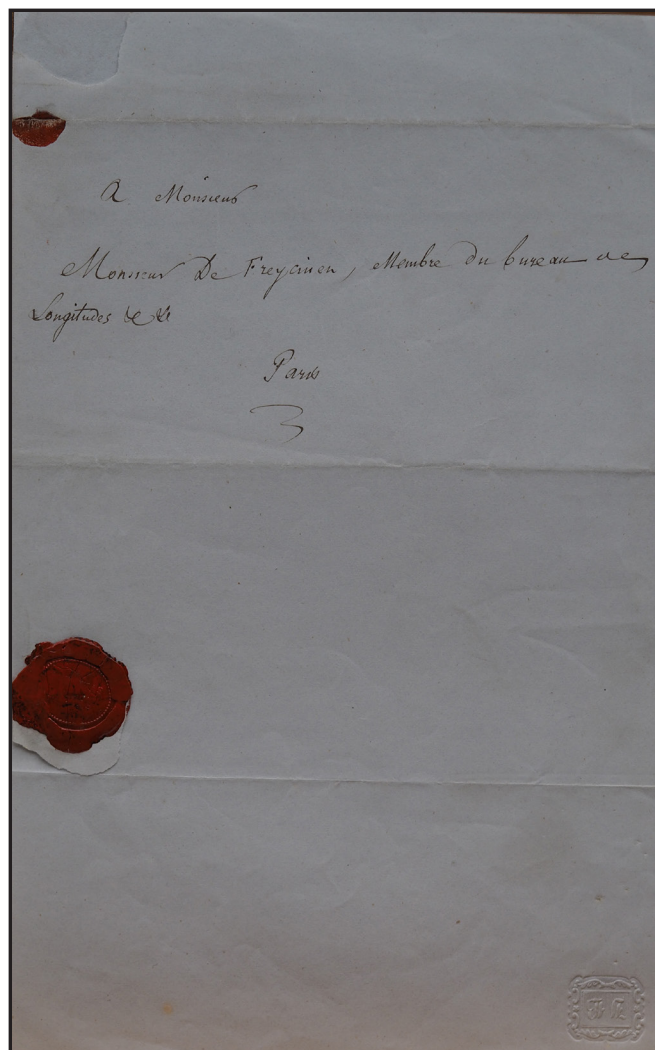 A Monsieur
Monsieur De Freycinen, Membre du bureau de
Longitudes &c &c
Paris